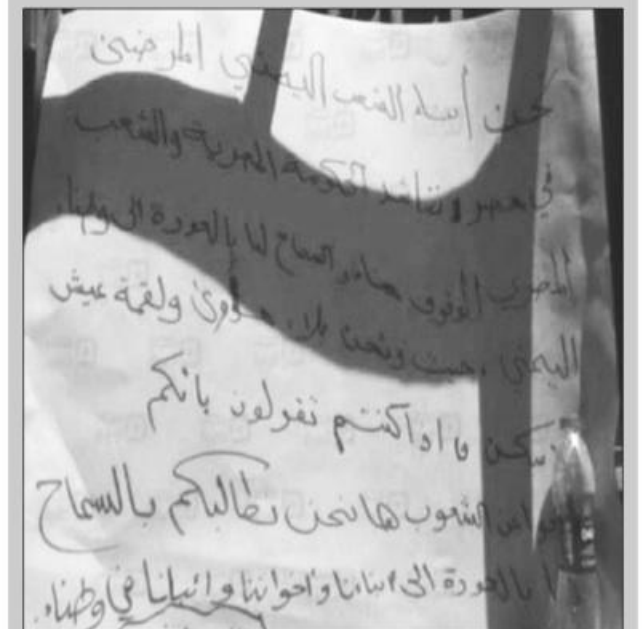 نحن أبناء الشعب اليمني المرضى
في مصر نناشد الحكومة المصرية والشعب
المصري الوقوف معنا والسماح لنا بالعودة الى وطننا
اليمني، حيث ونحن بلا مأوى ولقمة عيش
واذا كنتم تقولون بانكم
الشعوب ها نحن نطالبكم بالسماح
بالعودة الى ابناءنا واخواننا واهلنا في وطننا.